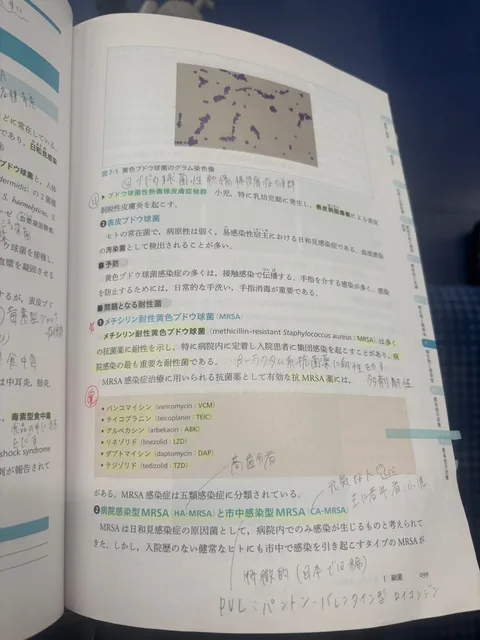 図7-1 黄色ブドウ球菌のグラム染色像
④ブドウ球菌性熱傷様皮膚症候群
▶ブドウ球菌性熱傷様皮膚症候群 小児,特に乳幼児期に発生し,
剝脱性皮膚炎を起こす.
❷表皮ブドウ球菌
ヒトの常在菌で,病原性は弱く,易感染性宿主における日和見感染症である.血液培養
の汚染菌として検出されることが多い.
■予防
黄色ブドウ球菌感染症の多くは,接触感染で伝播する.手指を介する感染が多く,感染
を防止するためには,日常的な手洗い,手指消毒が重要である.
■問題となる耐性菌
❶メチシリン耐性黄色ブドウ球菌(MRSA)
メチシリン耐性黄色ブドウ球菌(methicillin-resistant Staphylococcus aureus:MRSA)は多く
の抗菌薬に耐性を示し,特に病院内に定着し入院患者に集団感染を起こすことがあり,病
院感染の最も重要な耐性菌である.
β-ラクタム系抗菌薬に耐性を示す
MRSA感染症治療に用いられる抗菌薬として有効な抗MRSA薬には,
多剤耐性
・バンコマイシン(vancomycin:VCM)
・テイコプラニン(teicoplanin:TEIC)
・アルベカシン(arbekacin:ABK)
・リネゾリド(linezolid:LZD)
・ダプトマイシン(daptomycin:DAP)
・テジゾリド(tedizolid:TZD)
高齢者
元気な人
主に若年者,小児
がある.MRSA感染症は五類感染症に分類されている.
❷病院感染型MRSA(HA-MRSA)と市中感染型MRSA(CA-MRSA)
MRSAは日和見感染症の原因菌として,病院内でのみ感染が生じるものと考えられて
きた.しかし,入院歴のない健常なヒトにも市中で感染を引き起こすタイプのMRSAが
特徴的(日本では稀)
PVL:パントン-バレンタイン型ロイコシジン
1 細菌 099
どに常在している.
であり,日和見感染
ブドウ球菌と,人体
S. haemolytica,
食中毒
は中耳炎,
毒素型食中毒
shock syndrome
例が報告されて